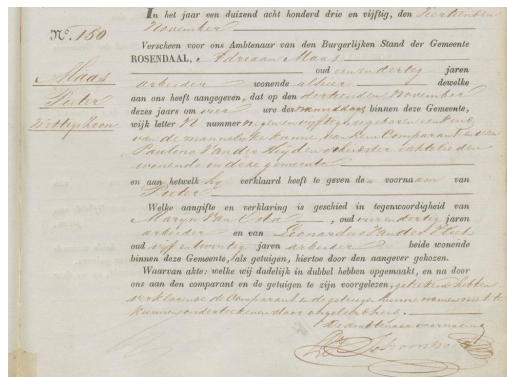 In het jaar een duizend acht honderd drie en vijftig, den
November
N° 150
Verscheen voor ons Ambtenaar van den Burgerlijken Stand der Gemeente
ROSENDAAL, Adriaan Maas
Maas
oud een en dertig jaren
arbeider wonende alhier dewelke
Pieter
aan ons heeft aangegeven, dat op den dertienden November
Wettig Zoon
dezes jaars om vier ure des namiddags binnen deze Gemeente,
wijk letter H nummer negen en vijftig is geboren een kind
van de mannelijke kunne, van den Comparant en van
Paulina Van der Heijden echtelieden
wonende in deze gemeente
en aan hetwelk hij verklaard heeft te geven den voornaam van
Pieter
Welke aangifte en verklaring is geschied in tegenwoordigheid van
Maryn Van Esta, oud vier en dertig jaren
arbeider en van Leonardus Van der Vliet
oud vijf en twintig jaren arbeider beide wonende
binnen deze Gemeente, als getuigen, hiertoe door den aangever gekozen.
Waarvan akte: welke wij dadelijk in dubbel hebben opgemaakt, en na door
ons aan den comparant en de getuigen te zijn voorgelezen, geteekend hebben
verklarende de Comparant en de getuigen hunne namen niet te
kunnen onderteekenen door ongeleerdheid.
De Ambtenaar voornoemd